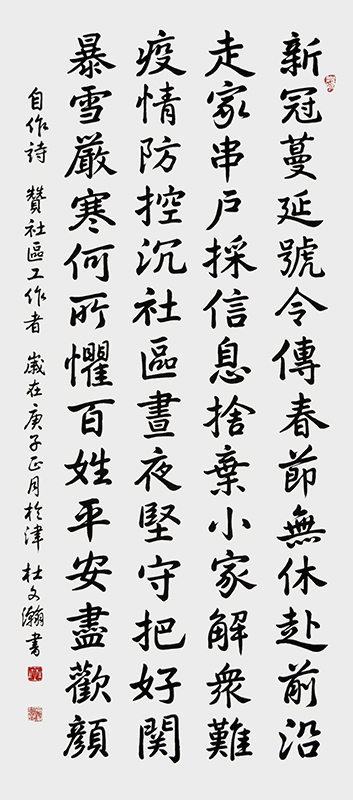 新冠蔓延號令傳春節無休赴前沿
走家串户採信息捨棄小家解衆難
疫情防控沉社區晝夜堅守把好関
暴雪厳寒何所懼百姓平安盡歡顔
自作詩 贊社區工作者 歲在庚子正月於津 杜文瀚書